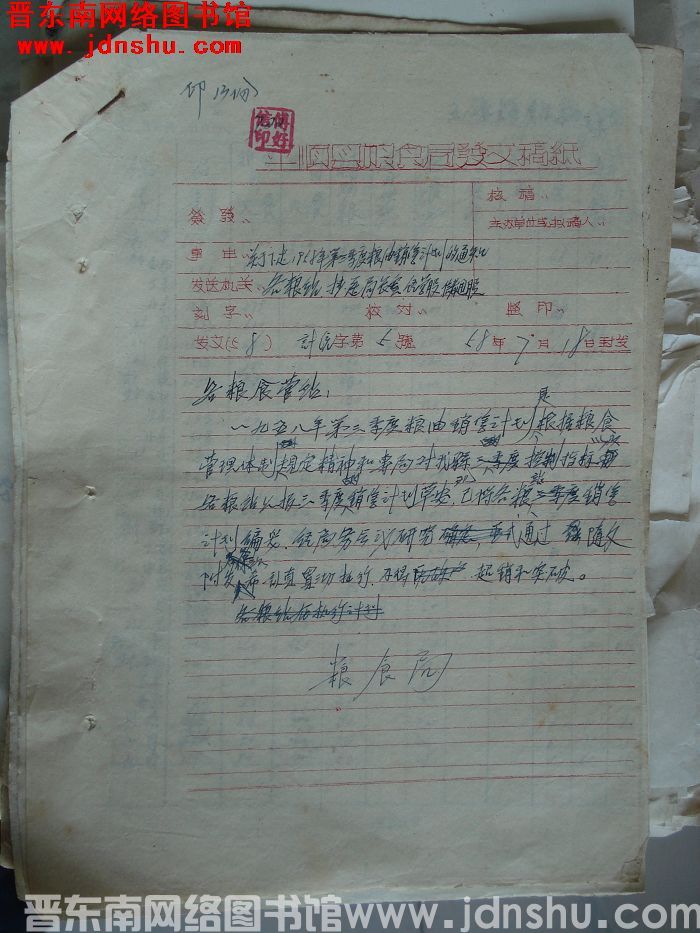 晋东南网络图书馆
www.jdnshu.com
印15份
平顺县粮食局發文稿紙
簽發
核稿
主办单位或拟稿人
事由 关于下达1958年第三季度粮油销售计划的通知
发送机关 各粮站
刻字 校对 监印
发文(58) 計統字第5號 58年7月18日封发
各粮食管站:
一九五八年第三季度粮油销售计划是根据粮食
管理体制规定精神和专局对我县三季度控制指标
各粮站上报三季度销售计划草案,已将各粮站三季度销售
计划编发,经局务会议研究 正式通过 随文
附发 希认真贯彻执行,不得 超销和突破。
各粮站在执行计划
粮食局
晋东南网络图书馆 www.jdnshu.com